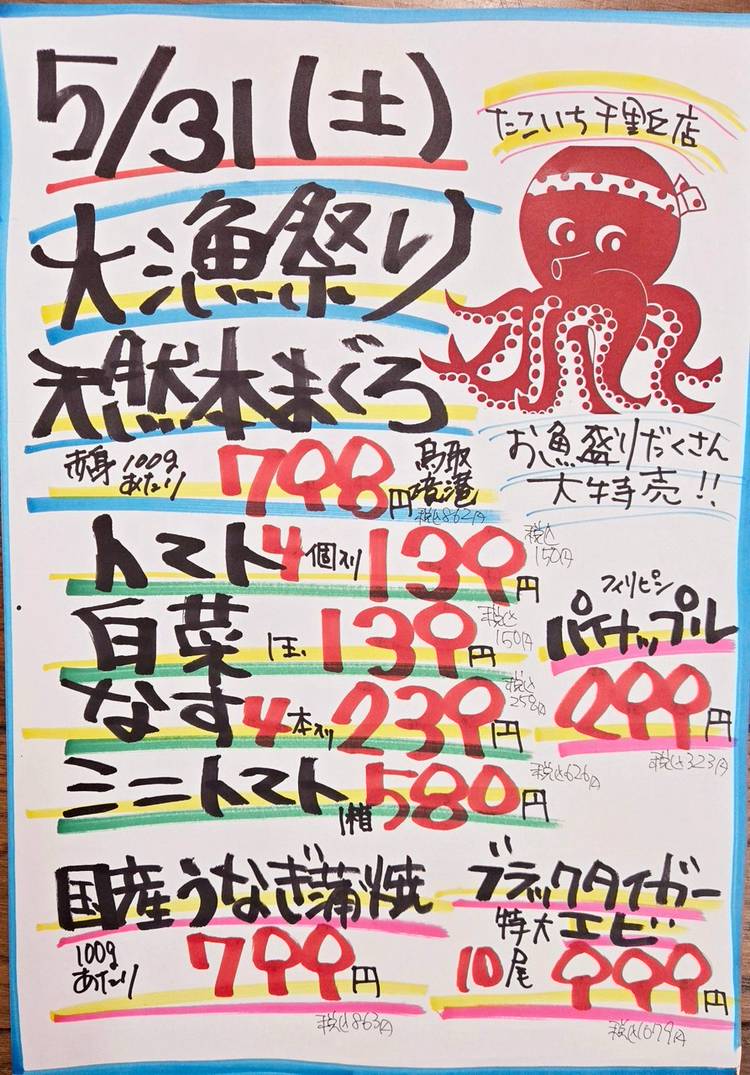 5/31(土)
たこいち千里丘店
大漁祭り
天然本まぐろ
赤身 100gあたり 798円 鳥取境港
税込862円
お魚盛りだくさん
大特売!!
トマト4個入り 139円
税込150円
白菜 1玉 139円
税込150円
なす4本入り 239円
税込258円
フィリピン
パイナップル
299円
税込323円
ミニトマト 1箱 580円
税込626円
国産うなぎ蒲焼
100gあたり 799円
税込863円
ブラックタイガー
特大エビ
10尾 999円
税込1079円